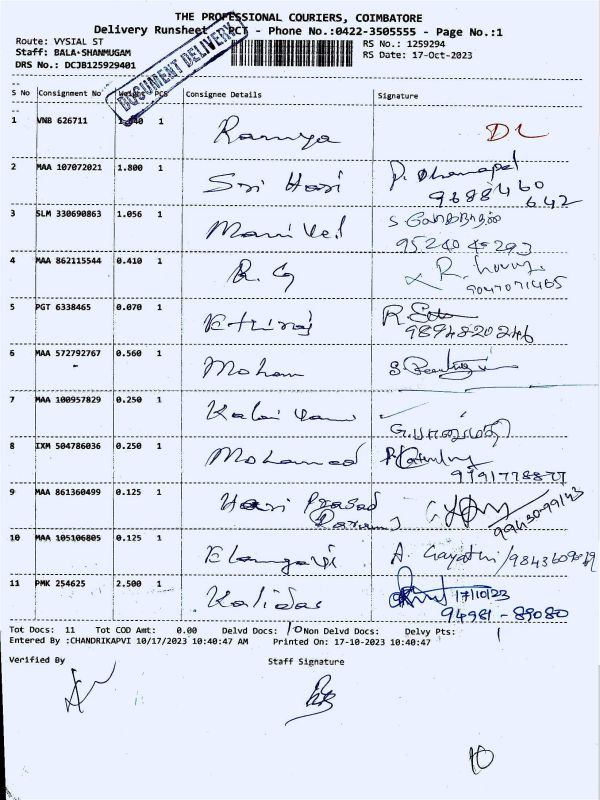 THE PROFESSIONAL COURIERS, COIMBATORE
Delivery Runsheet - PCT - Phone No.:0422-3505555 - Page No.:1
Route: VYSIAL ST
RS No.: 1259294
Staff: BALA-SHANMUGAM
RS Date: 17-Oct-2023
DRS No.: DCJB125929401
DOCUMENT DELIVERY
S No Consignment No Weight PCS Consignee Details Signature
1 VNB 626711 1 Ramya DL
2 MAA 107072021 1.800 1 Sri Hari P. Dhanapal
9688460
642
3 SLM 330690863 1.056 1 Mani Vel S
95240 45293
4 MAA 862115544 0.410 1 R. G R.
9047071465
5 PGT 6338465 0.070 1 Ethiraj R
98948 20246
6 MAA 572792767 0.560 1 Mohan S
7 MAA 100957829 0.250 1 Kalai Vani
8 IXM 504786036 0.250 1 Mohamed
9 MAA 861360499 0.125 1 Hari Prasad
99430-99143
10 MAA 105106805 0.125 1 A. Gayathri
11 PMK 254625 2.500 1 Kalidas 17/10/23
94981-89080
Tot Docs: 11 Tot COD Amt: 0.00 Delvd Docs: 10 Non Delvd Docs: Delvy Pts: 1
Entered By :CHANDRIKAPVI 10/17/2023 10:40:47 AM Printed On: 17-10-2023 10:40:47
Verified By Staff Signature
10